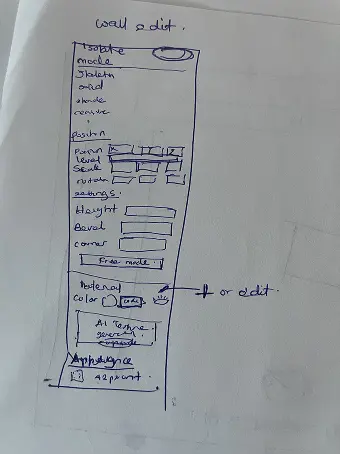 wall edit.
Isolate
mode
Skeleton
solid
shade
Position
x z
level
Scale
rotate
settings.
Height
Bevel
corner
Free mode.
Material
Color code
+ or edit.
AI Texture
general
Appearance